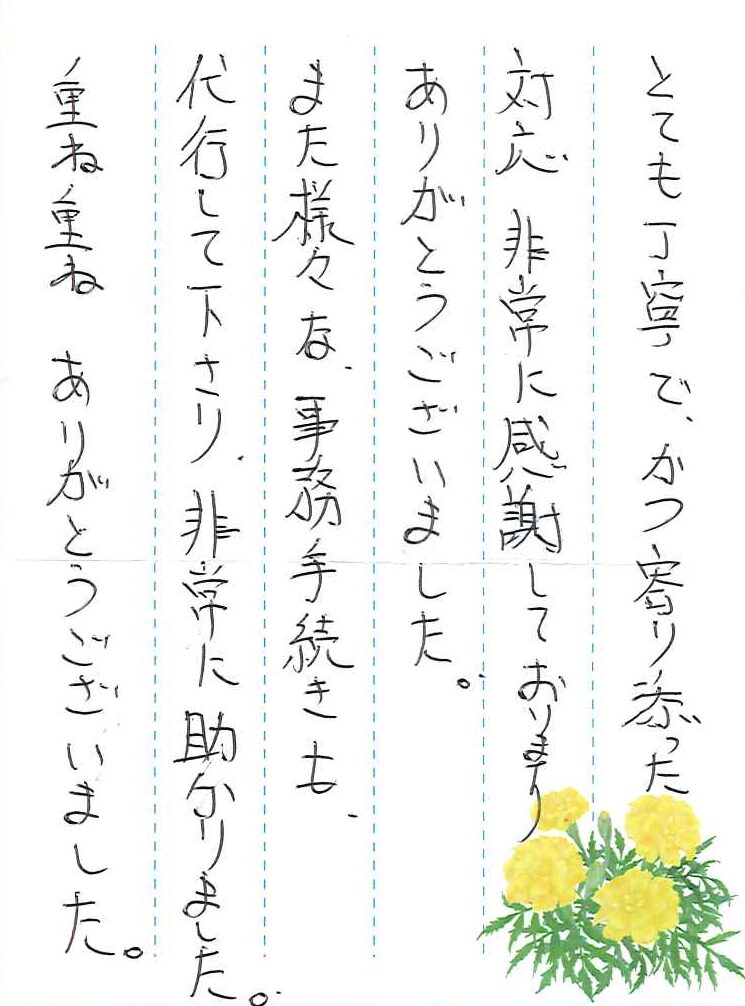 とても丁寧で、かつ寄り添った
対応 非常に感謝しております
ありがとうございました。
また様々な、事務手続きも、
代行して下さり、非常に助かりました。
重ね重ね ありがとうございました。